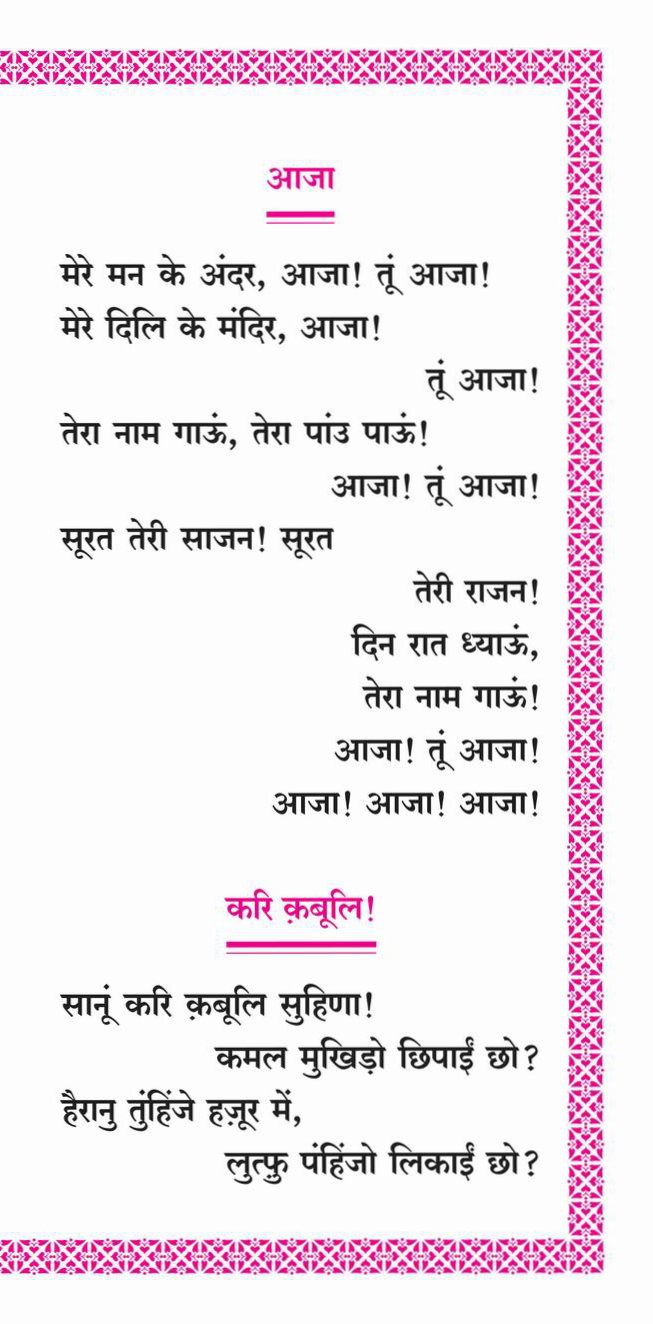 आजा
मेरे मन के अंदर, आजा! तूं आजा!
मेरे दिलि के मंदिर, आजा!
तूं आजा!
तेरा नाम गाऊं, तेरा पांउ पाऊं!
आजा! तूं आजा!
सूरत तेरी साजन! सूरत
तेरी राजन!
दिन रात ध्याऊं,
तेरा नाम गाऊं!
आजा! तूं आजा!
आजा! आजा! आजा!
करि क़बूलि!
सानूं करि क़बूलि सुहिणा!
कमल मुखिड़ो छिपाईं छो?
हैरानु तुंहिंजे हज़ूर में,
लुत्फ़ु पंहिंजो लिकाईं छो?